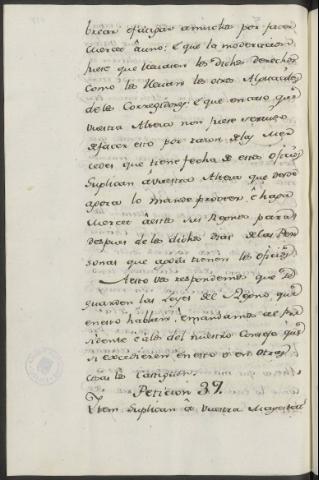 brear esparzar a muchos por facer
merced à uno: è que la moderacion
fuese que llevasen los dichos derechos
como los llevan los otros Alguaciles
de los Corregidores: è que en caso que
vuestra Alteza non fuese servido
de facer esto por razon de las Mer-
cedes que tiene fecha de estos oficios
Suplican à vuestra Alteza que desde
agora lo mande proveer, è haga
merced à estos sus Regnos para
despues de los dichos dias de las Per-
sonas que agora tienen los oficios
A esto vos respondemos que se
guarden las Leyes del Regno, que
en esto hablan: è mandamos al Pre-
sidente è à los del nuestro Consejo que
si excedieren en esto o en otras
cosas los castiguen.
Peticion 37.
Yten suplican à vuestra Magestad